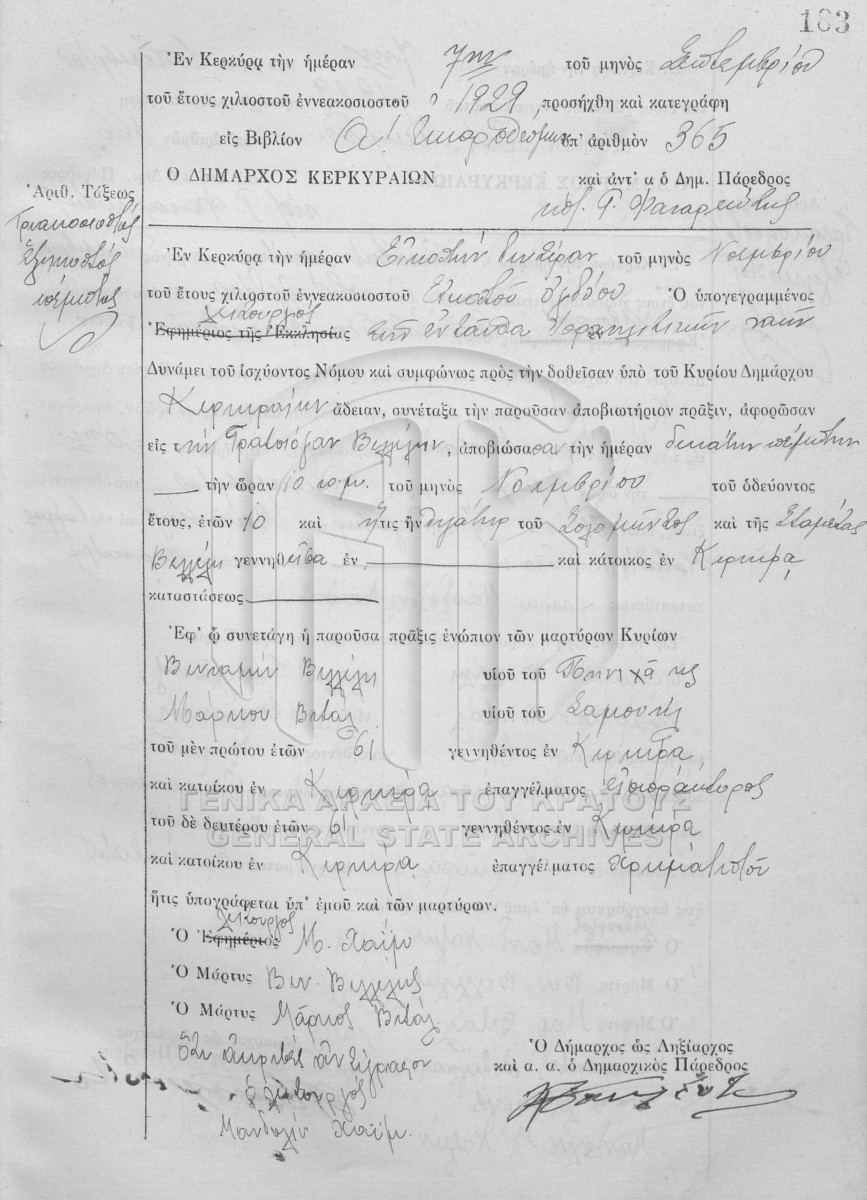 183
Ἐν Κερκύρᾳ τὴν ἡμέραν 7ην τοῦ μηνὸς Σεπτεμβρίου
τοῦ ἔτους χιλιοστοῦ ἐννεακοσιοστοῦ 1929, προσήχθη καὶ κατεγράφη
εἰς Βιβλίον Α' Ἐκπροθέσμων ὑπ' ἀριθμὸν 365
Ο ΔΗΜΑΡΧΟΣ ΚΕΡΚΥΡΑΙΩΝ καὶ ἀντ' α ὁ Δημ. Πάρεδρος
Ἀριθ. Τάξεως
Τριακοσιοστὸς
ἑξηκοστὸς
πέμπτος
Ἐν Κερκύρᾳ τὴν ἡμέραν Εἰκοστὴν τοῦ μηνὸς Νοεμβρίου
τοῦ ἔτους χιλιοστοῦ ἐννεακοσιοστοῦ Εἰκοστοῦ ὀγδόου Ὁ ὑπογεγραμμένος
Λειτουργὸς
Ἐφημέριος τῆς Ἐκκλησίας τῆς ἐνταῦθα Ἰσραηλιτικῆς
Δυνάμει τοῦ ἰσχύοντος Νόμου καὶ συμφώνως πρὸς τὴν δοθεῖσαν ὑπὸ τοῦ Κυρίου Δημάρχου
Κερκυραίων ἄδειαν, συνέταξα τὴν παροῦσαν ἀποβιωτήριον πρᾶξιν, ἀφορῶσαν
εἰς τὴν Γρατσιόζαν Βελλέλη, ἀποβιώσασαν τὴν ἡμέραν δεκάτην πέμπτην
τὴν ὥραν 10 π.μ. τοῦ μηνὸς Νοεμβρίου τοῦ ὁδεύοντος
ἔτους, ἐτῶν 10 καὶ ἥτις ἦν θυγάτηρ τοῦ Σολομῶντος καὶ τῆς Σταμέτας
Βελλέλη γεννηθεῖσα ἐν καὶ κάτοικος ἐν Κερκύρᾳ
καταστάσεως
Ἐφ' ᾧ συνετάγη ἡ παροῦσα πρᾶξις ἐνώπιον τῶν μαρτύρων Κυρίων
Βενιαμὴν Βελλέλη υἱοῦ τοῦ
Μάρκου Βιτάλ υἱοῦ τοῦ Σαμουὴλ
τοῦ μὲν πρώτου ἐτῶν 61 γεννηθέντος ἐν Κερκύρᾳ
καὶ κατοίκου ἐν Κερκύρᾳ ἐπαγγέλματος εἰσπράκτορος
τοῦ δὲ δευτέρου ἐτῶν 61 γεννηθέντος ἐν Κερκύρᾳ
καὶ κατοίκου ἐν Κερκύρᾳ ἐπαγγέλματος χρηματιστοῦ
ἥτις ὑπογράφεται ὑπ' ἐμοῦ καὶ τῶν μαρτύρων.
Λειτουργὸς
Ὁ Ἐφημέριος Μ. Χαΐμ
Ὁ Μάρτυς Βεν. Βελλέλης
Ὁ Μάρτυς Μάρκος Βιτάλ
Ὅτι ἀκριβὲς ἀντίγραφον
ὁ λειτουργὸς
Μανδολὶν Χαΐμ
Ὁ Δήμαρχος ὡς Ληξίαρχος
καὶ α. α. ὁ Δημαρχικὸς Πάρεδρος
ΓΕΝΙΚΑ ΑΡΧΕΙΑ ΤΟΥ ΚΡΑΤΟΥΣ
GENERAL STATE ARCHIVES